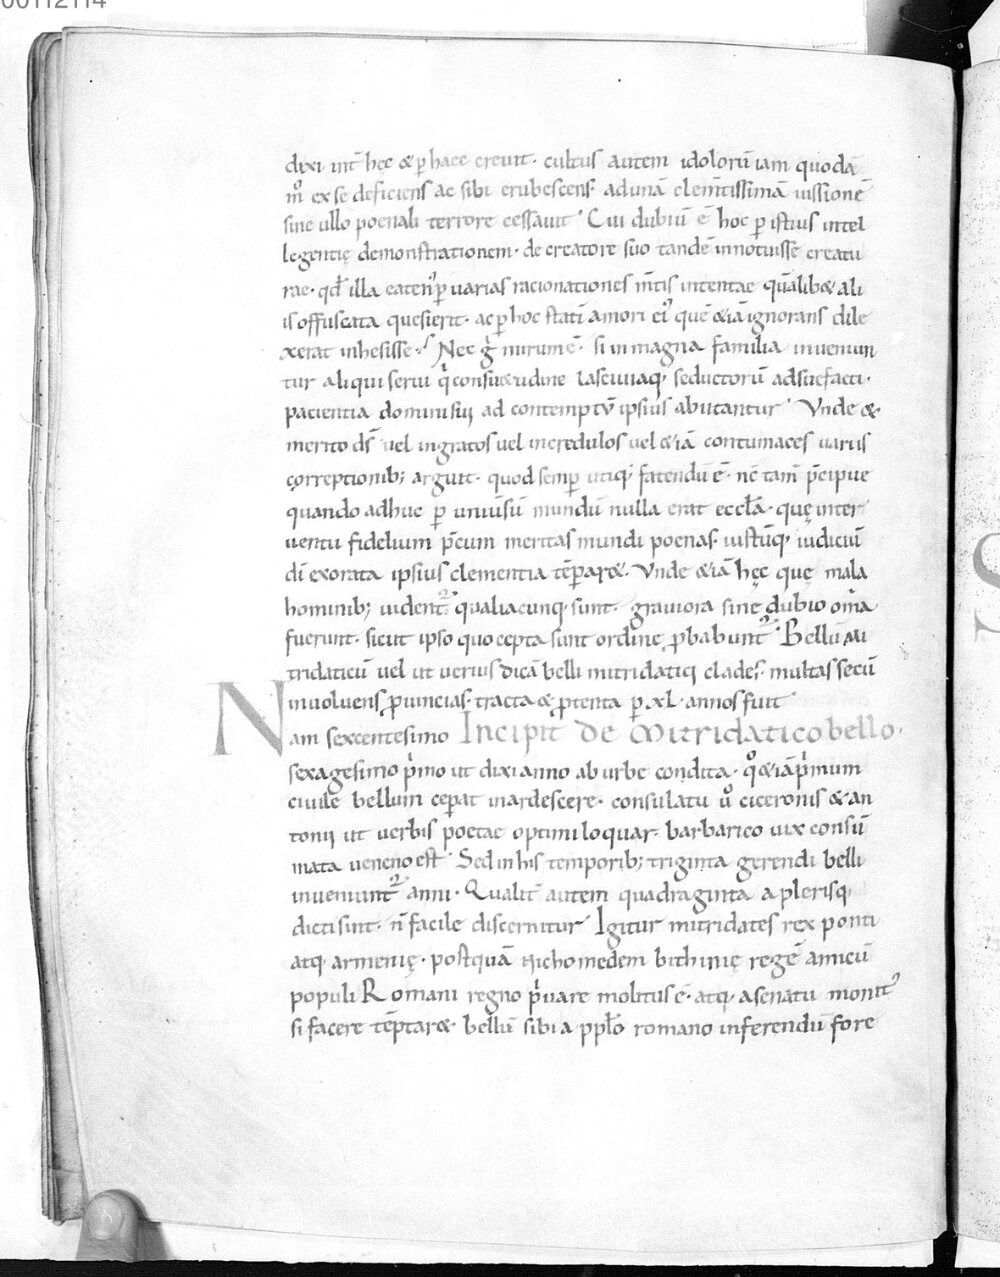 00112114
dixi int̄ hęc & p̱ haec creuit · cultus autem idolorū iam quodā
m̊ ex se deficiens ac sibi erubescens · ad unā clem̄tissimā iussionē
sine ullo poenali terrore cessauit · Cui dubiū ē hoc p̱ istius intel
legentię demonstrationem · de creatore suo tandē innotuisse creatu
rae · qđ illa eaten' p̱ uarias racionationes m̄tis intentae quālib& ali
is offuscata quesierit · ac p̱ hoc statī amori ei' quē &iā ignorans dile
xerat inhesisse · Nec g̊ mirum ē · si in magna familia inueniun
tur aliqui serui q̇ consu&udine lasciuiaq; seductorū adsuefacti ·
pacientia domini sui ad contemptū ipsius abutantur · Vnde &
merito dš uel ingratos uel incredulos uel &iā contumaces uariis
correptionib; arguit · quod semp̱ utiq; fatendū ē · nē tam̄ p̄cipue
quando adhuc p̱ uniūsū mundū nulla erat eccl̄a · quę inter
uentu fidelium p̄cum meritas mundi poenas · iustūq; iudiciū
dī exorata ipsius clementia tēpar& · Vnde &iā hęc quę mala
hominib; uident² qualiacunq; sunt · grauiora sine dubio om̄a
fuerunt · sicut ipso quo cepta sunt ordine p̱babunt² · Bellū mi
tridaticū uel ut uerius dicā belli mitridatici clades · multas secū
inuoluens p̱uincias · tracta & p̱tenta p̱ xl · annos fuit
Nam sexcentesimo Incipit de Mitridatico bello ·
sexagesimo p̊mo ut dixi anno ab urbe condita · q̊ &iā p̊mum
ciuile bellum cep̱at inardescere · consulatu ů ciceronis & an
tonii ut uerbis poetae optimi loquar · barbarico uix consū
mata ueneno est · Sed in his temporib; triginta gerendi belli
inueniunt² anni · Qualit̄ autem quadraginta a plerisq;
dicti sint · n̄ facile discernitur Igitur mitridates rex ponti
atq; armenię · postquā nichomedem bithinię regē amicū
populi Romani regno p̊uare molitus ē · atq; a senatu monit'
si facere tēptar& · bellū sibi a pplo romano inferendū fore